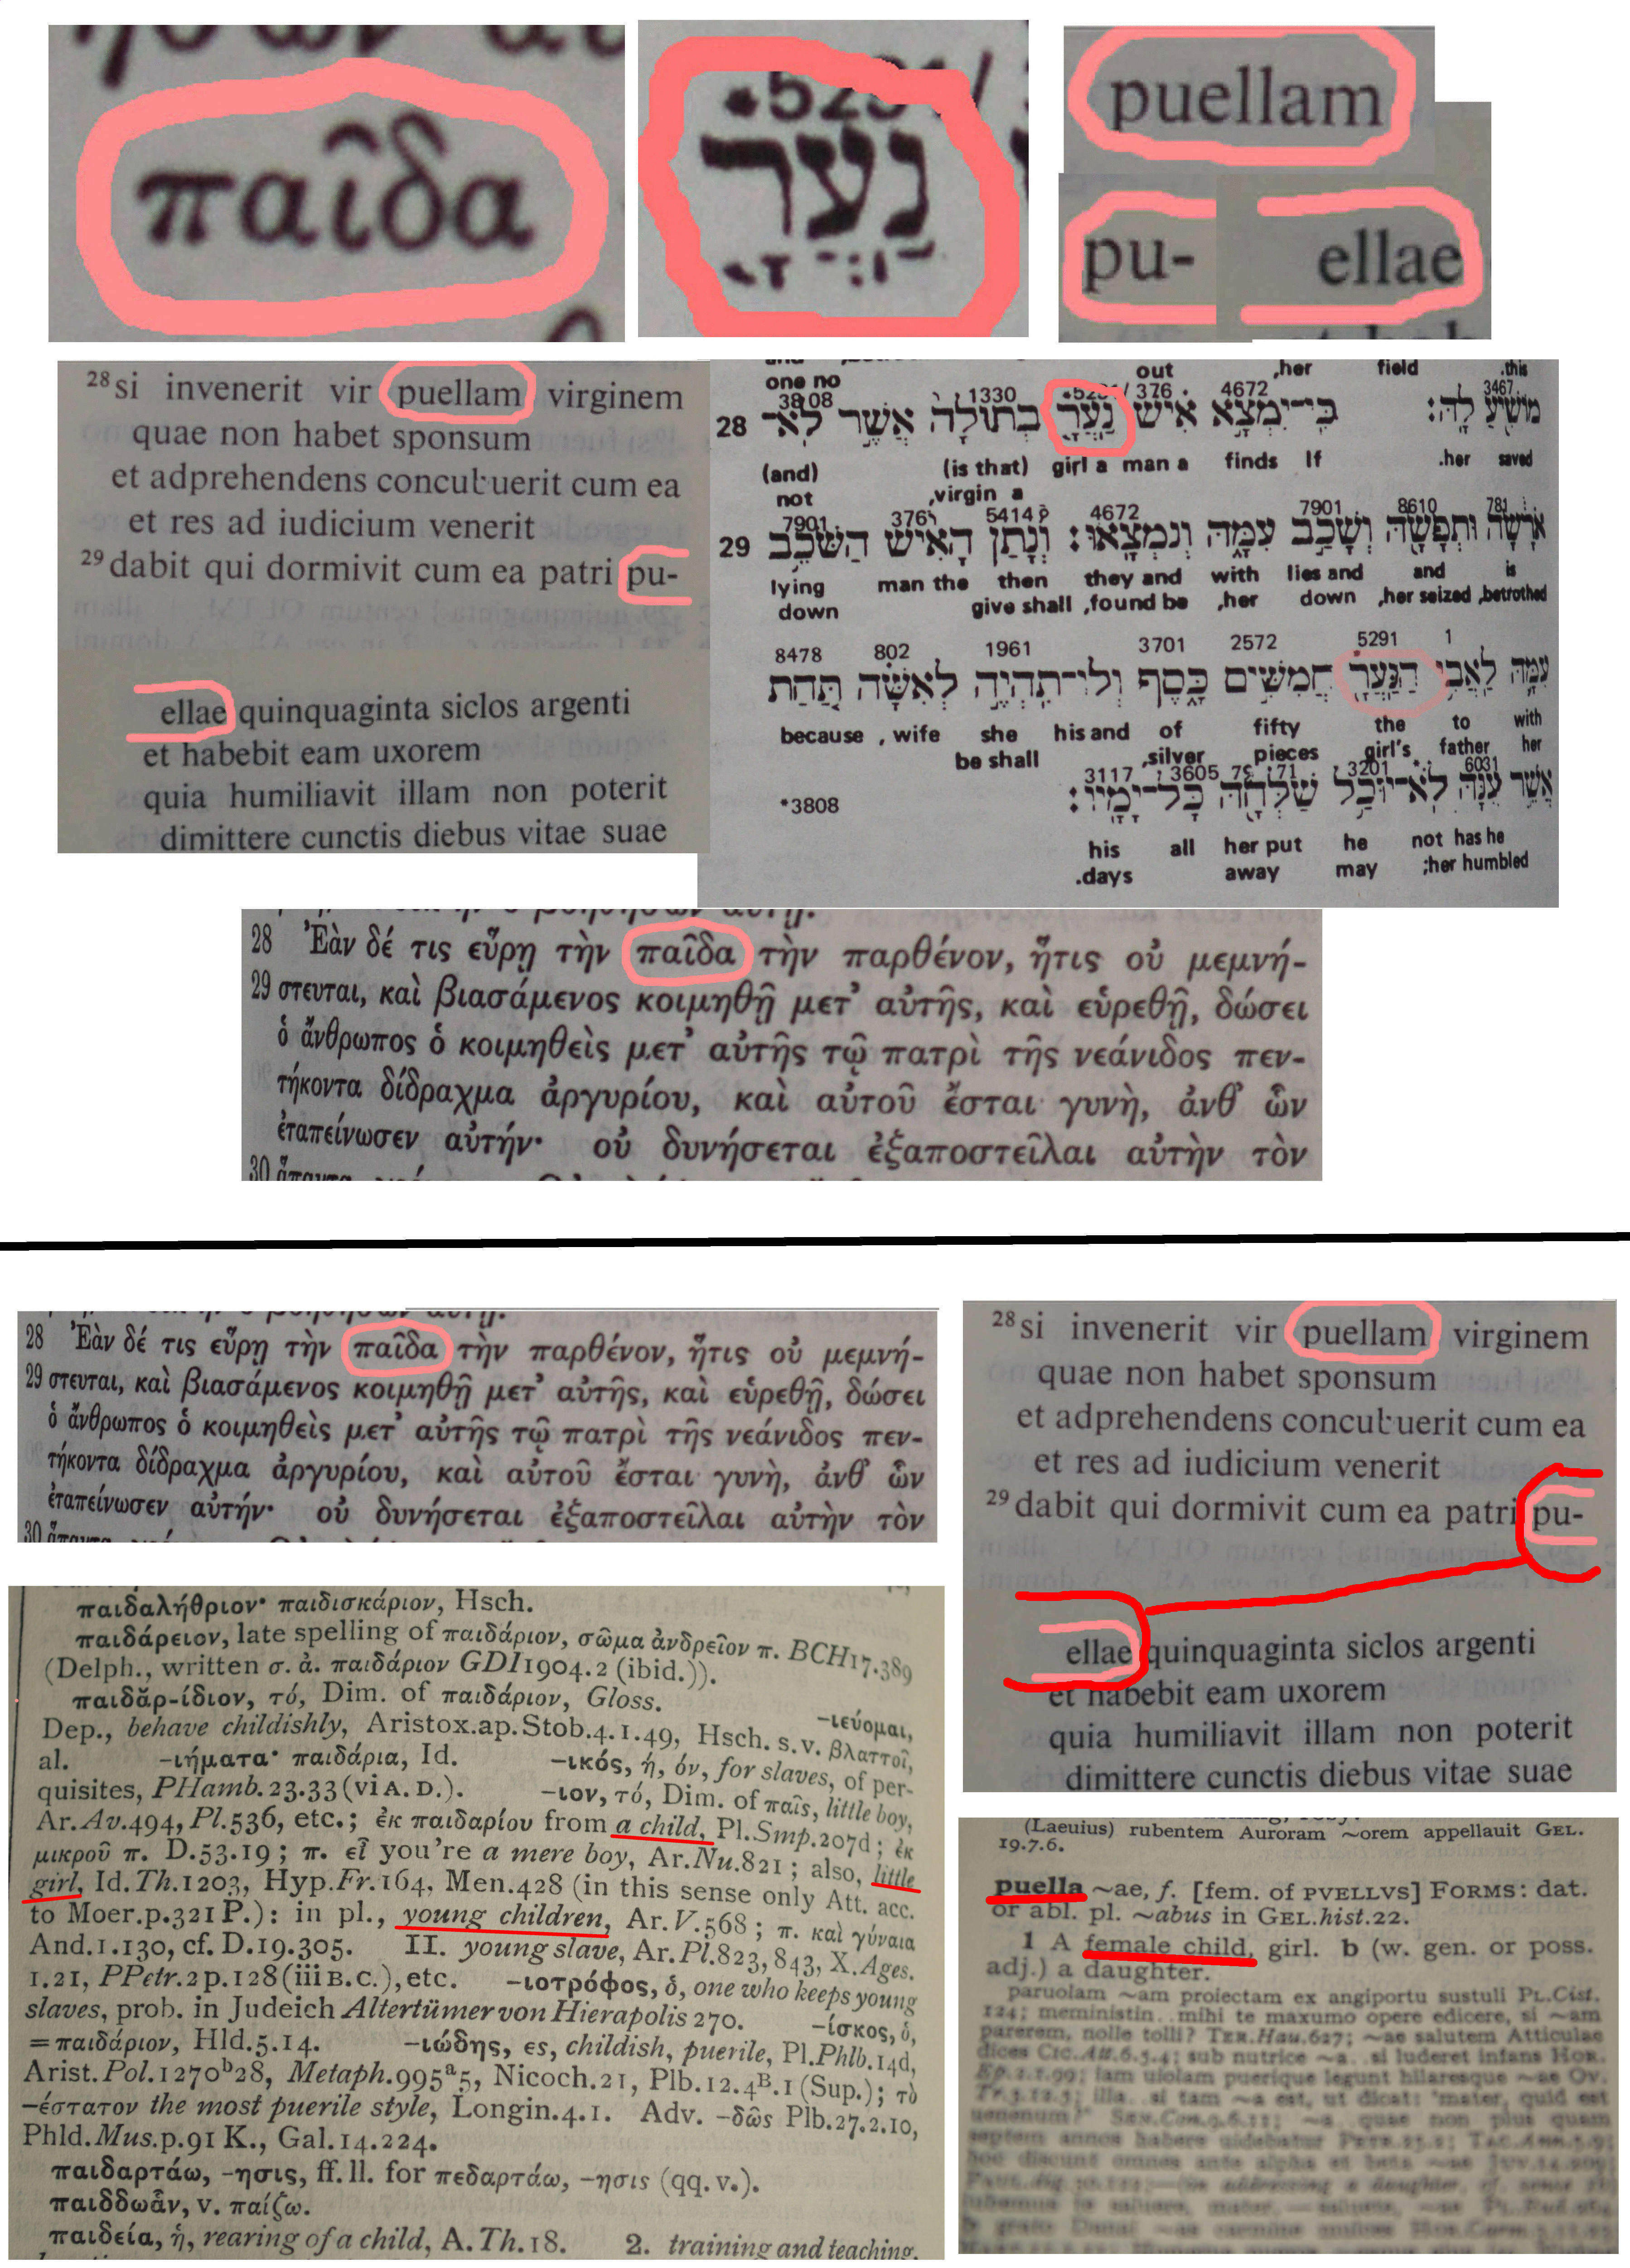 παῖδα
נַעֲרָ
puellam
pu- ellae
28 si invenerit vir puellam virginem
quae non habet sponsum
et adprehendens concubuerit cum ea
et res ad iudicium venerit
29 dabit qui dormivit cum ea patri pu-
ellae quinquaginta siclos argenti
et habebit eam uxorem
quia humiliavit illam non poterit
dimittere cunctis diebus vitae suae
out ,her field .this
one no
3808 1330 376 4672 3467
28 מוֹשִׁיעַ לָהּ׃ כִּי־יִמְצָא אִישׁ נַעֲרָ בְתוּלָה אֲשֶׁר לֹא־
(and) (is that) girl a man a finds If .her saved
not ,virgin a
7901 376 5414 4672 7901 8610 781
29 אֹרָשָׂה וּתְפָשָׂהּ וְשָׁכַב עִמָּהּ וְנִמְצָאוּ׃ וְנָתַן הָאִישׁ הַשֹּׁכֵב
lying man the then they and with lies and and is
down give shall ,found be ,her down ,her seized ,betrothed
8478 802 1961 3701 2572 5291 1
עִמָּהּ לַאֲבִי הַנַּעֲרָ חֲמִשִּׁים כָּסֶף וְלוֹ־תִהְיֶה לְאִשָּׁה תַּחַת
because , wife she his and of fifty the to with
be shall ,silver pieces girl's father her
3117 3605 7971 3201 6031
אֲשֶׁר עִנָּהּ לֹא־יוּכַל שַׁלְּחָהּ כָּל־יָמָיו׃
*3808
his all her put he not has he
.days away may ;her humbled
28 Ἐὰν δέ τις εὕρῃ τὴν παῖδα τὴν παρθένον, ἥτις οὐ μεμνή-
29 στευται, καὶ βιασάμενος κοιμηθῇ μετ’ αὐτῆς, καὶ εὑρεθῇ, δώσει
ὁ ἄνθρωπος ὁ κοιμηθεὶς μετ’ αὐτῆς τῷ πατρὶ τῆς νεάνιδος πεν-
τήκοντα δίδραχμα ἀργυρίου, καὶ αὐτοῦ ἔσται γυνὴ, ἀνθ’ ὧν
ἐταπείνωσεν αὐτήν· οὐ δυνήσεται ἐξαποστεῖλαι αὐτὴν τὸν
30
28 Ἐὰν δέ τις εὕρῃ τὴν παῖδα τὴν παρθένον, ἥτις οὐ μεμνή-
29 στευται, καὶ βιασάμενος κοιμηθῇ μετ’ αὐτῆς, καὶ εὑρεθῇ, δώσει
ὁ ἄνθρωπος ὁ κοιμηθεὶς μετ’ αὐτῆς τῷ πατρὶ τῆς νεάνιδος πεν-
τήκοντα δίδραχμα ἀργυρίου, καὶ αὐτοῦ ἔσται γυνὴ, ἀνθ’ ὧν
ἐταπείνωσεν αὐτήν· οὐ δυνήσεται ἐξαποστεῖλαι αὐτὴν τὸν
30
28 si invenerit vir puellam virginem
quae non habet sponsum
et adprehendens concubuerit cum ea
et res ad iudicium venerit
29 dabit qui dormivit cum ea patri pu-
ellae quinquaginta siclos argenti
et habebit eam uxorem
quia humiliavit illam non poterit
dimittere cunctis diebus vitae suae
παιδαλήθριον· παιδισκάριον, Hsch.
παιδάρειον, late spelling of παιδάριον, σῶμα ἀνδρεῖον π. BCH17.389
(Delph., written σ. ἀ. παιδάριον GDI1904.2 (ibid.)).
παιδᾰρ-ίδιον, τό, Dim. of παιδάριον, Gloss. -ιεύομαι,
Dep., behave childishly, Aristox.ap.Stob.4.1.49, Hsch. s.v. βλαττοῖ,
al. -ιήματα· παιδάρια, Id. -ικός, ή, όν, for slaves, of per-
quisites, PHamb.23.33 (vi A.D.). -ιον, τό, Dim. of παῖς, little boy,
Ar.Av.494, Pl.536, etc.; ἐκ παιδαρίου from a child, Pl.Smp.207d; ἐκ
μικροῦ π. D.53.19; π. εἶ you're a mere boy, Ar.Nu.821; also, little
girl, Id.Th.1203, Hyp.Fr.164, Men.428 (in this sense only Att. acc.
to Moer.p.321 P.): in pl., young children, Ar.V.568; π. καὶ γύναια
And.1.130, cf. D.19.305. II. young slave, Ar.Pl.823, 843, X.Ages.
1.21, PPetr.2p.128 (iii B.C.), etc. -ιοτρόφος, ὁ, one who keeps young
slaves, prob. in Judeich Altertümer von Hierapolis 270. -ίσκος, ὁ,
=παιδάριον, Hld.5.14. -ιώδης, ες, childish, puerile, Pl.Phlb.14d,
Arist.Pol.1270b28, Metaph.995a5, Nicoch.21, Plb.12.4B.1 (Sup.); τὸ
-έστατον the most puerile style, Longin.4.1. Adv. -δῶς Plb.27.2.10,
Phld.Mus.p.91 K., Gal.14.224.
παιδαρτάω, -ησις, ff. ll. for πεδαρτάω, -ησις (qq. v.).
παιδδωἇν, v. παίζω.
παιδεία, ἡ, rearing of a child, A.Th.18. 2. training and teaching,
(Laeuius) rubentem Auroram ~orem appellauit GEL.
19.7.6.
puella ~ae, f. [fem. of PVELLVS] FORMS: dat.
or abl. pl. ~abus in GEL.hist.22.
1 A female child, girl. b (w. gen. or poss.
adj.) a daughter.
paruolam ~am proiectam ex angiportu sustuli PL.Cist.
124; meministin.. mihi te maxumo opere edicere, si ~am
parerem, nolle tolli? TER.Hau.627; ~ae salutem Atticulae
dices CIC.Att.6.5.4; sub nutrice ~a.. si luderet infans HOR.